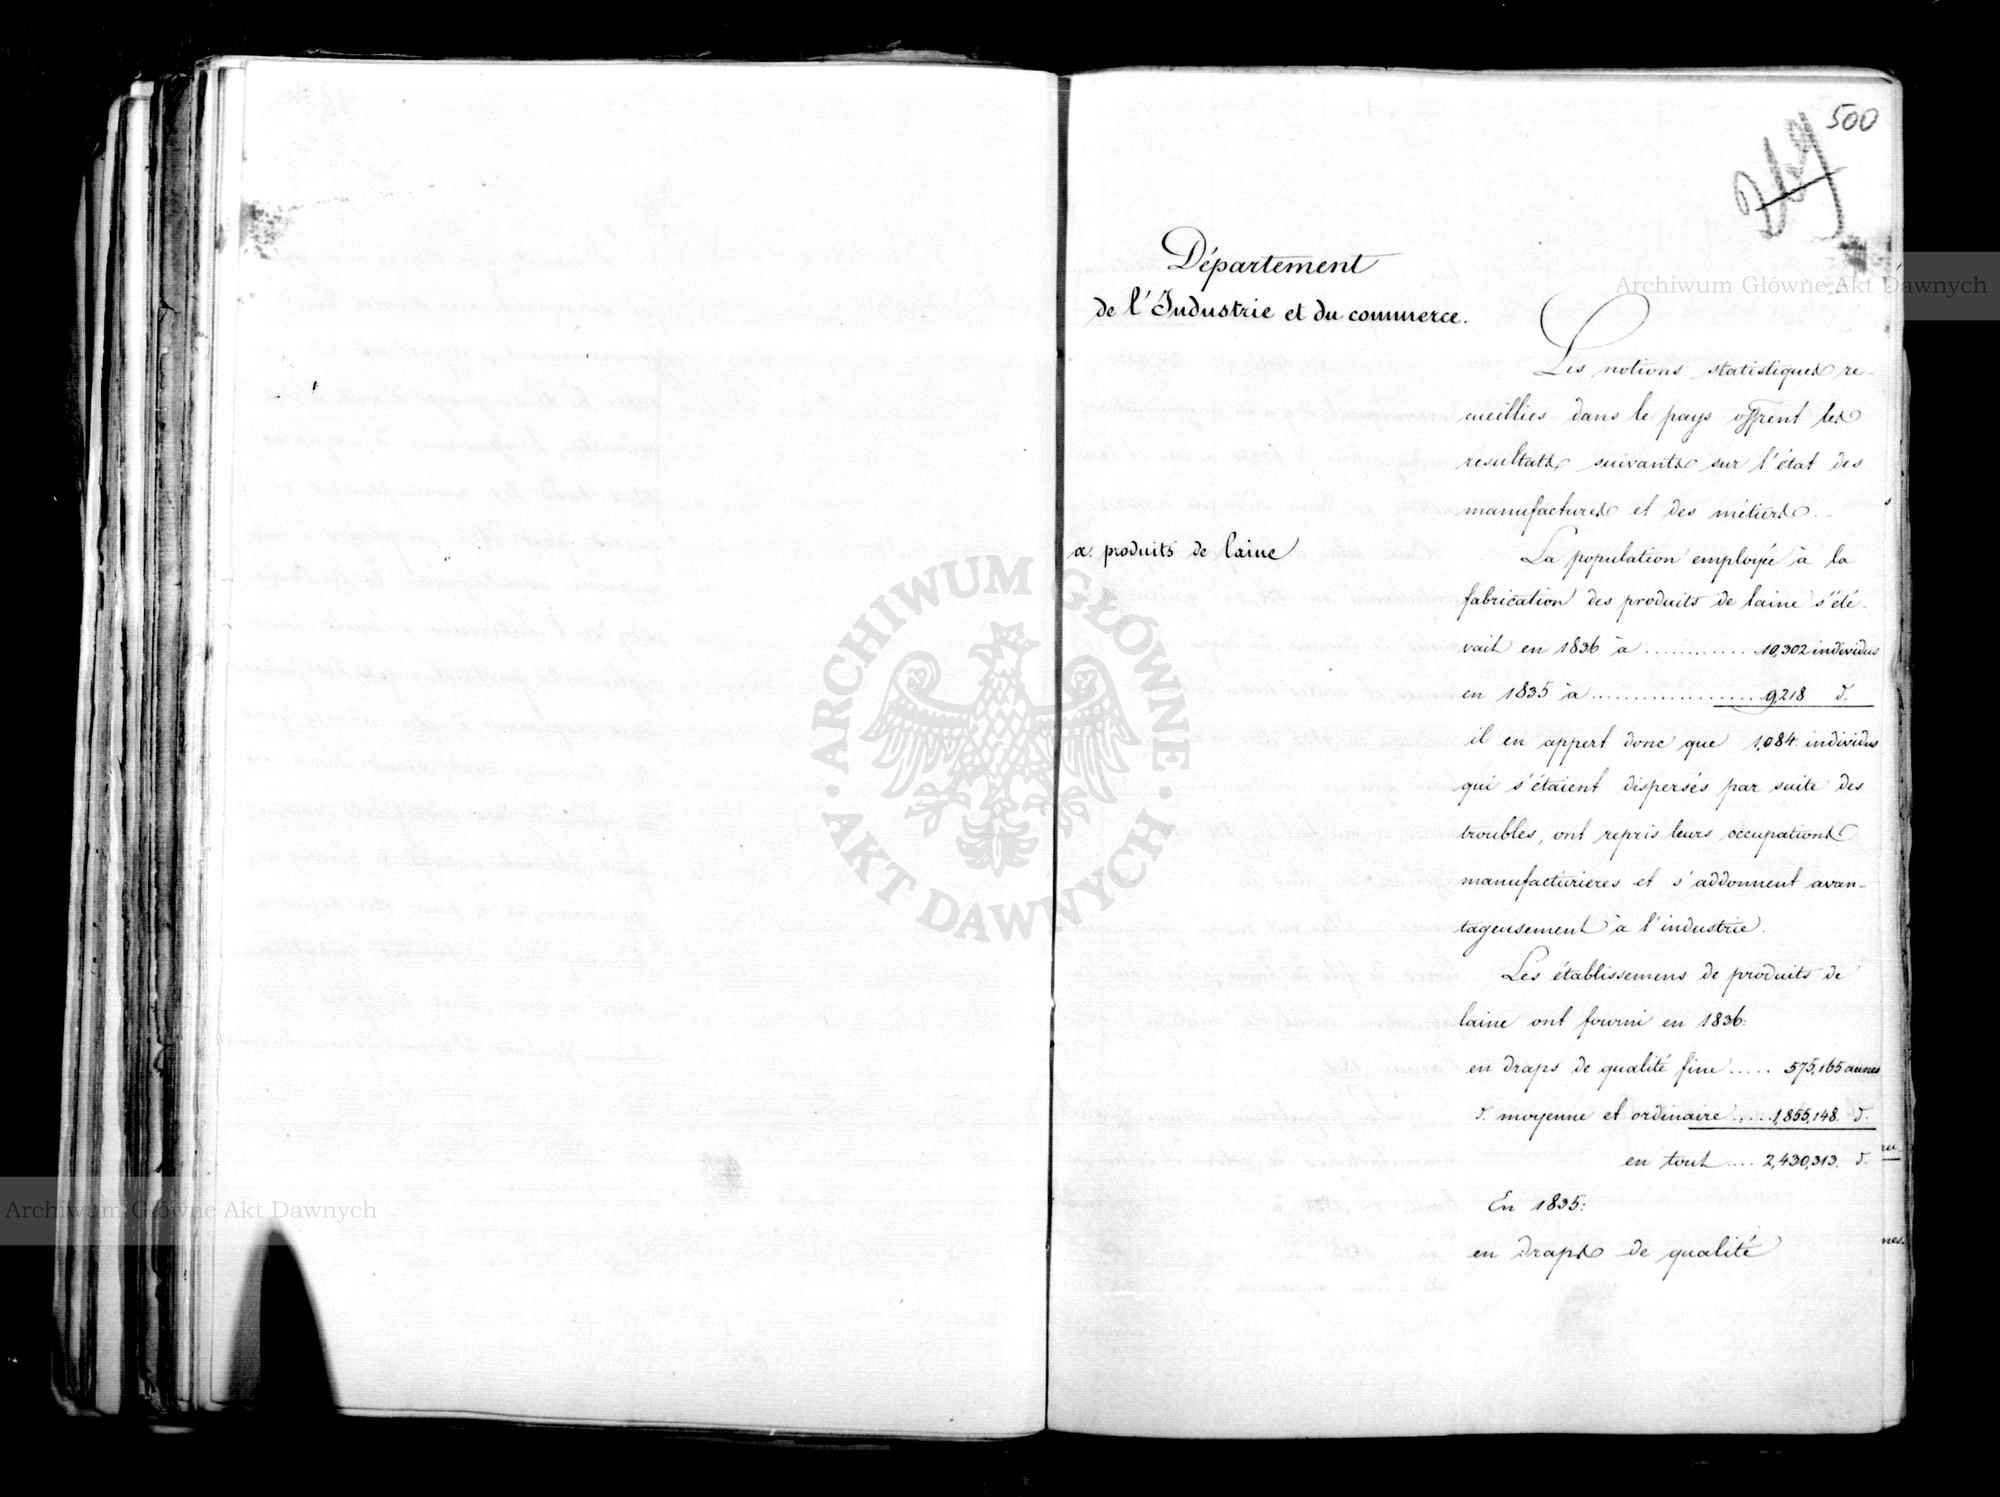 500
269
Département
de l'Industrie et du commerce.
Les notions statistiques re-
cueillies dans le pays offrent les
resultats suivants sur l'état des
manufactures et des métiers.
a. produits de laine
La population employée à la
fabrication des produits de laine s'éle-
vait en 1836 à ............ 10,302 individus
en 1835 à .................. 9,218 d.
il en appert donc que 1,084 individus
qui s'étaient dispersés par suite des
troubles, ont repris leurs occupations
manufacturieres et s'addonnent avan-
tageusement à l'industrie.
Les établissemens de produits de
laine ont fourni en 1836:
en draps de qualité fine ..... 575,165 aunes
d. moyenne et ordinaire ..... 1,855,148. d.
en tout .... 2,430,313. d.
En 1835:
en draps de qualité
nes.
ARCHIWUM GŁÓWNE · AKT DAWNYCH ·
Archiwum Główne Akt Dawnych
Archiwum Główne Akt Dawnych